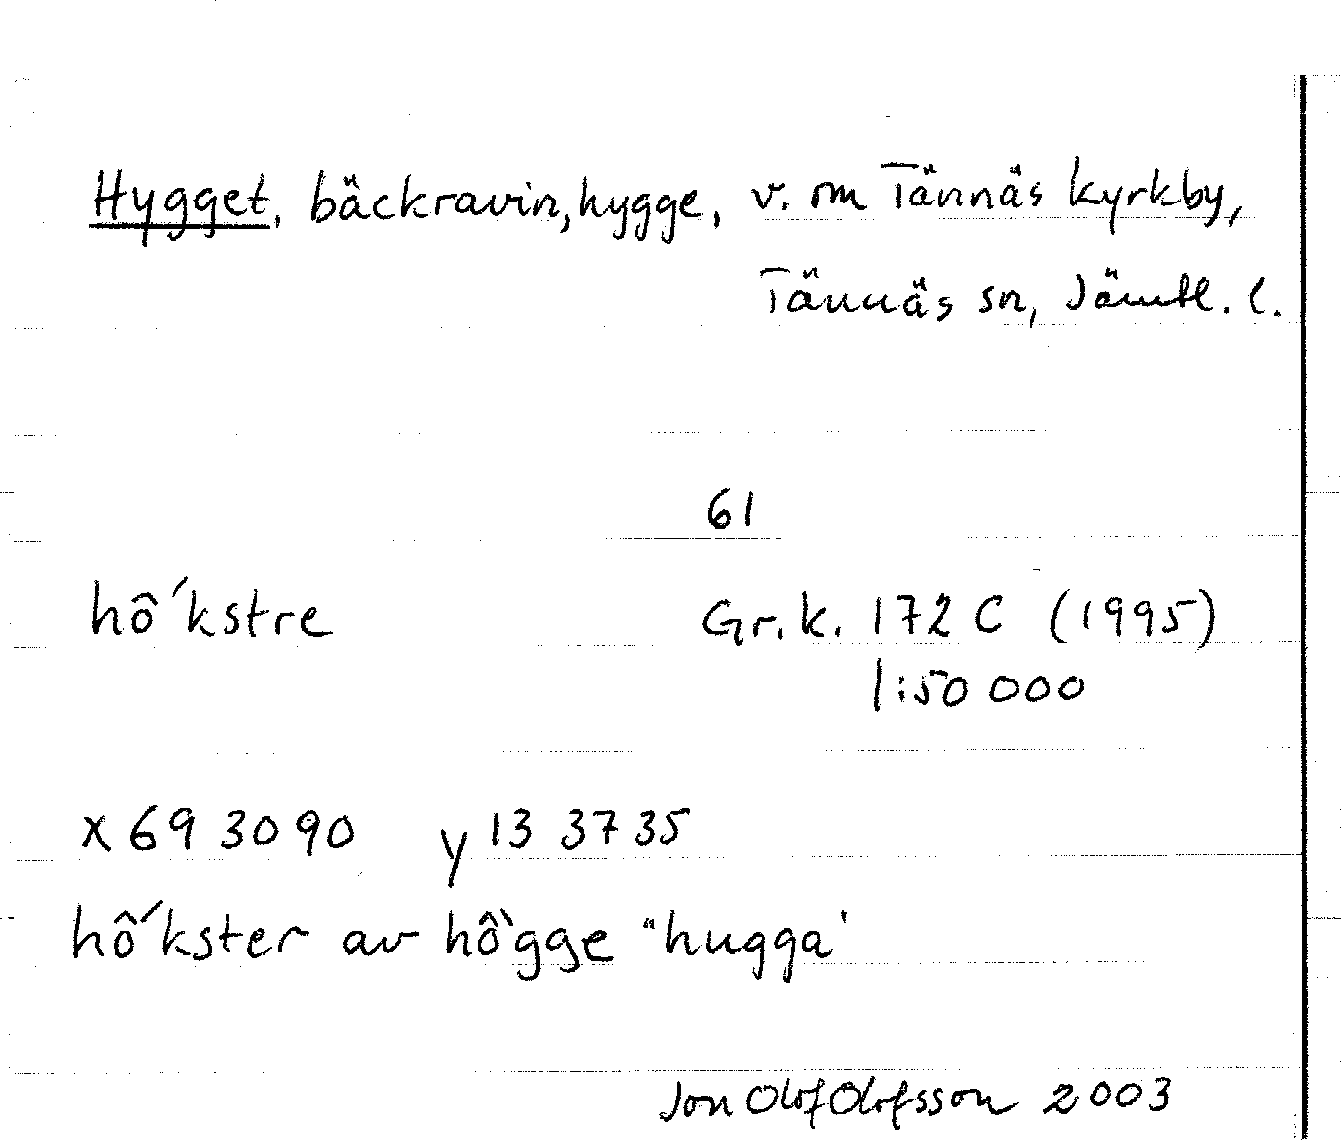 Hygget, bäckravin, hygge, v. om Tännäs kyrkby,
Tännäs sn, Jämtl. l.
61
hô´kstre Gr.k. 172 C (1995)
1:50 000
x 69 30 90 y 13 37 35
hô´kster av hô`gge "hugga'
Jon Olof Olofsson 2003